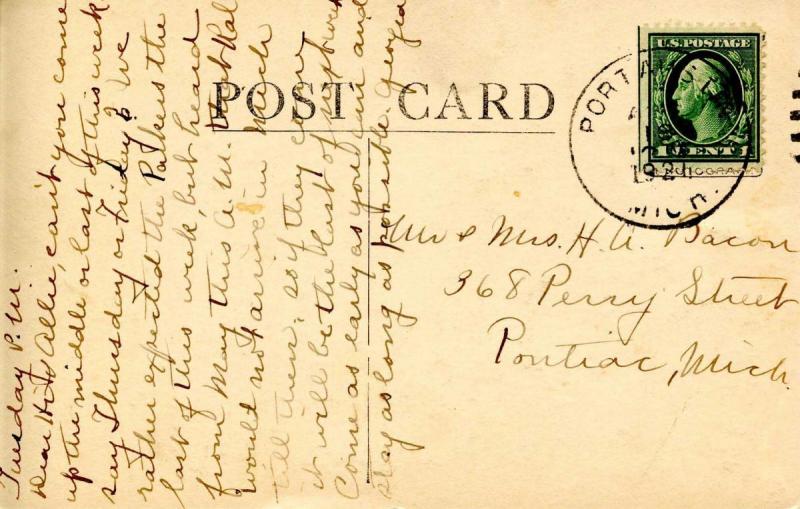 POST CARD
U.S. POSTAGE
1 CENT 1
PORT AUSTIN
1921
MICH.
Mr & Mrs. H. A. Bacon
368 Perry Street
Pontiac, Mich
Tuesday P.M.
Dear H & Allie, can't you come
up the middle or last of this week
say Thursday or Friday? We
rather expected the Palkers the
last of this week, but heard
from May this A.M. that Hal
would not arrive in
till then, as if they come
it will be the last of next week
Come as early as you can and
stay as long as possible. Georgia